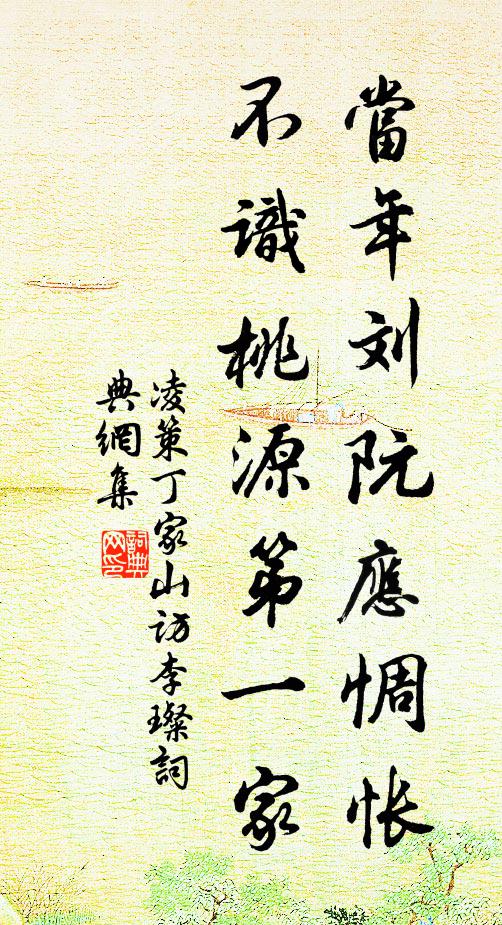 當年刘阮應惆怅
不識桃源第一家
凌策丁家山访李璨詞
典網集
詞典
网印